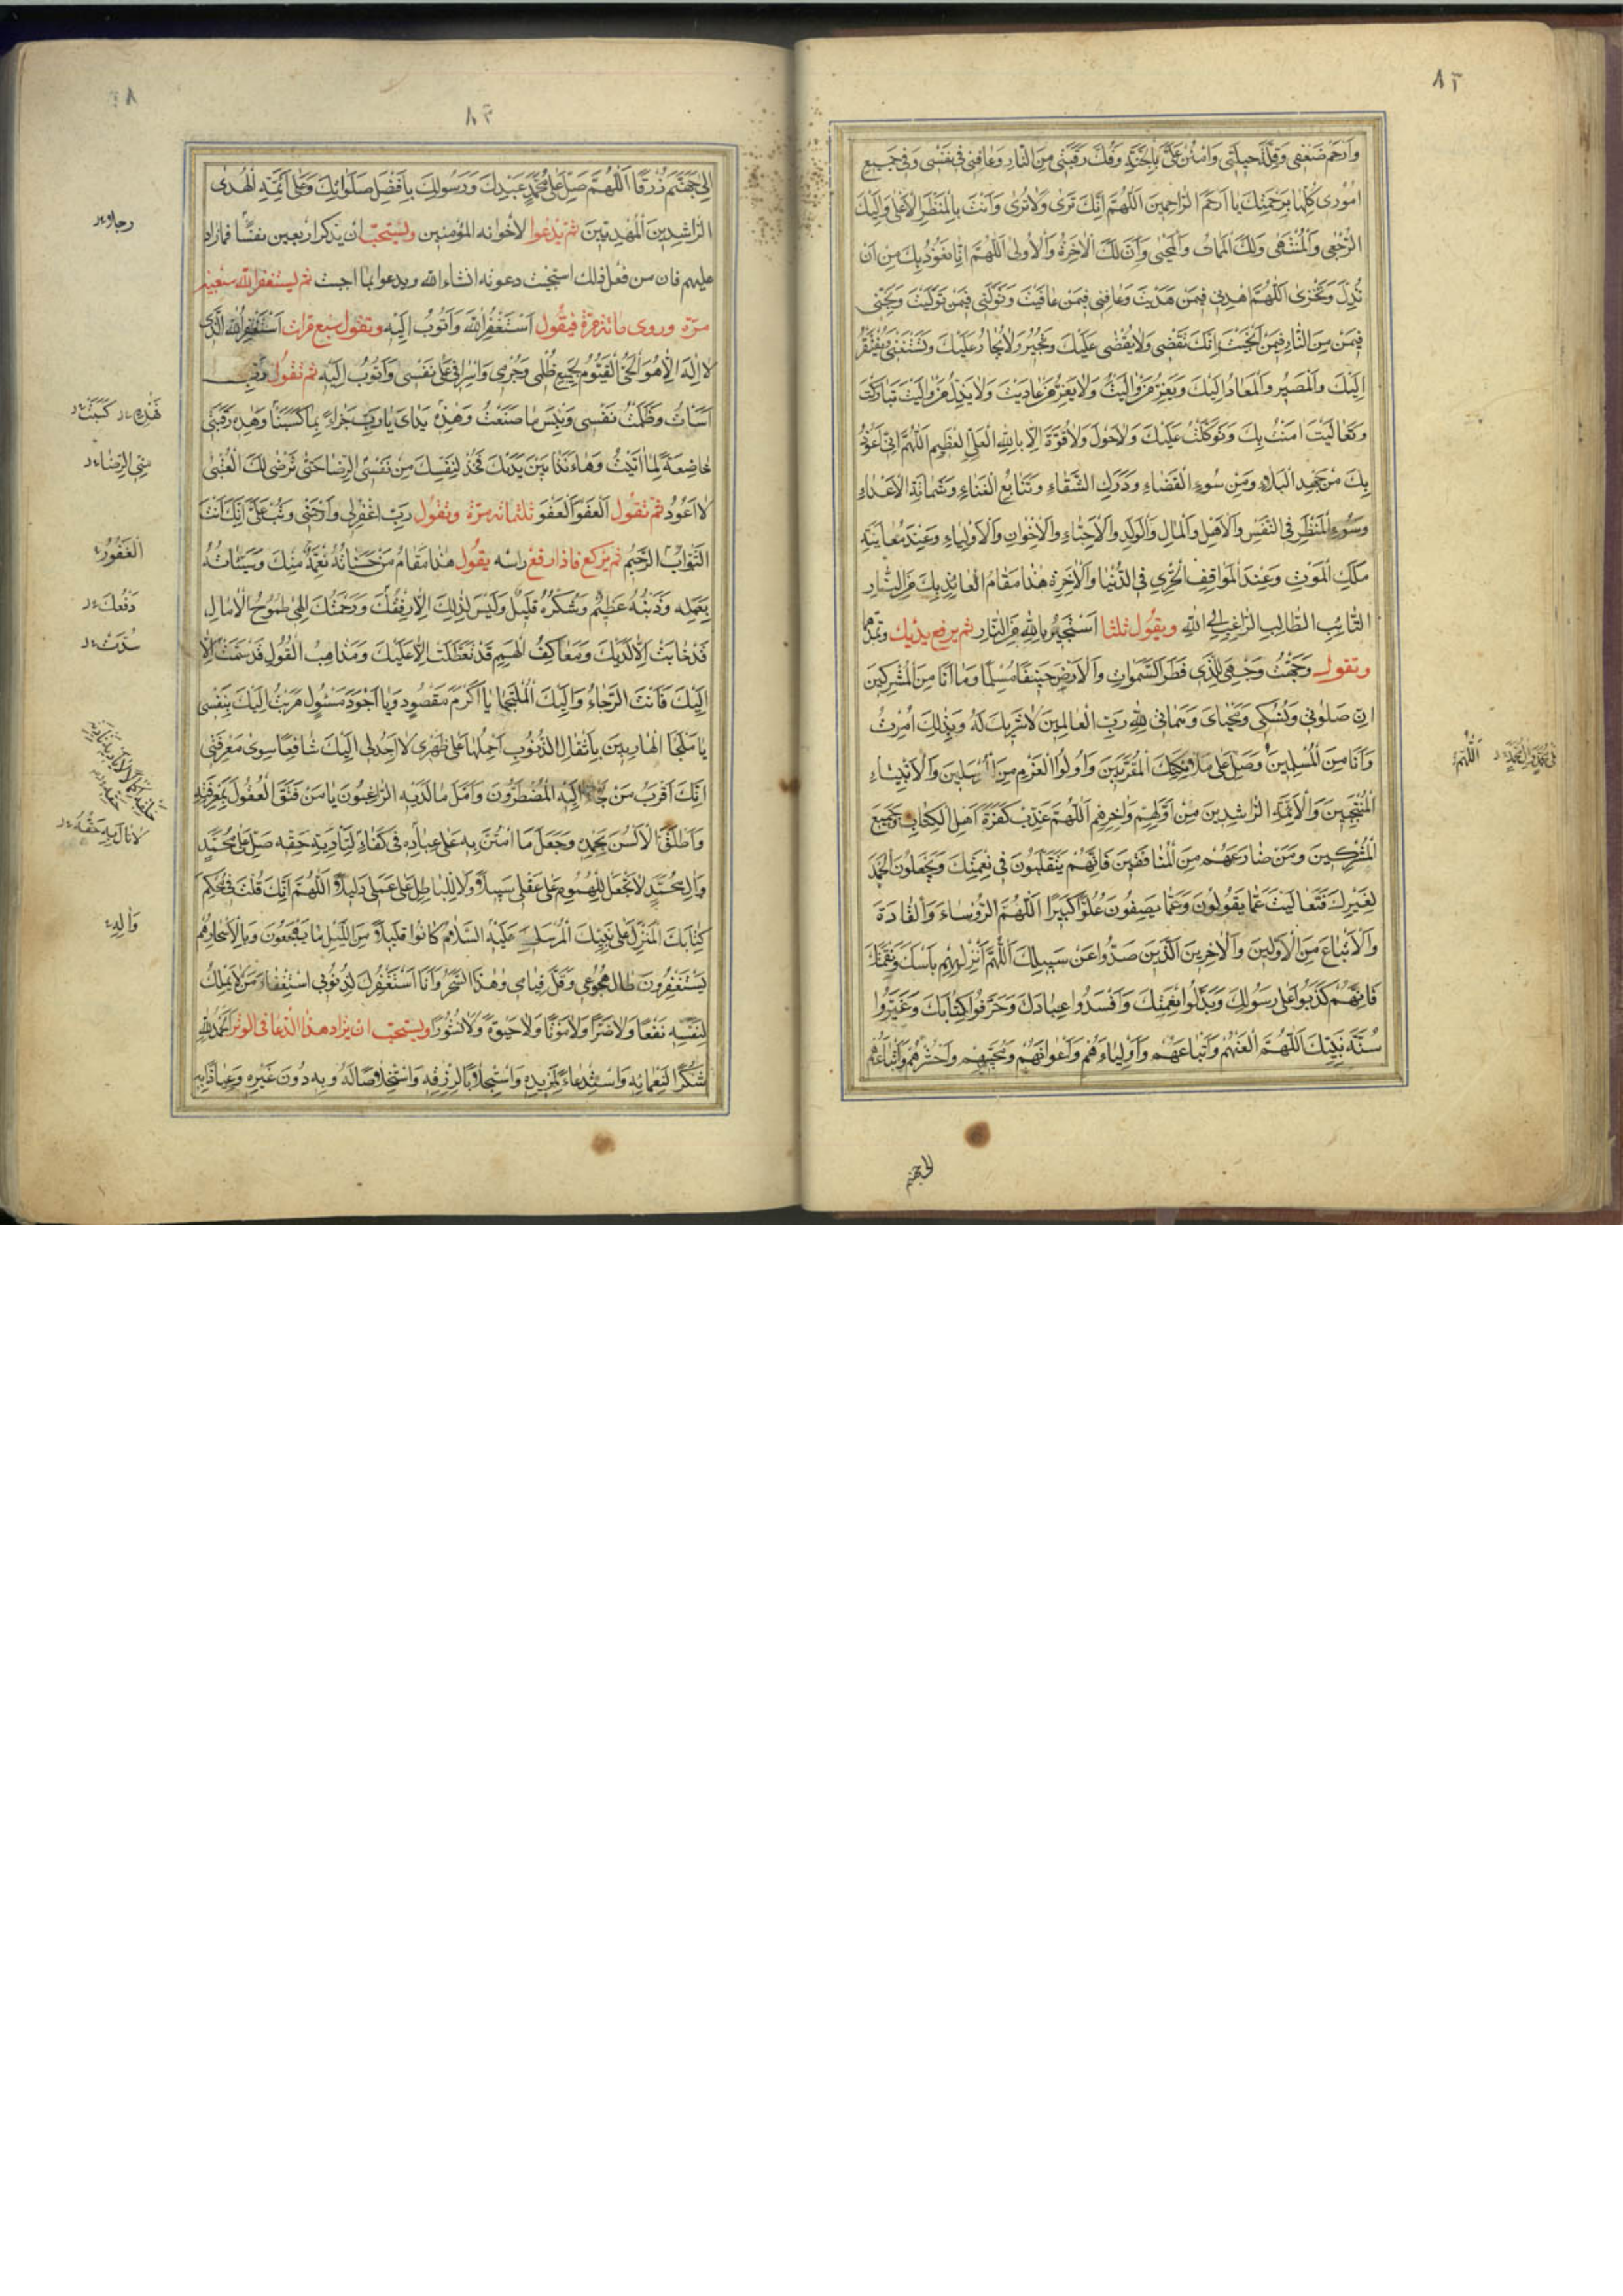 ٨٢
وَارْحَمْ ضَعْفى وَقِلَّةَ حيلَتى وَامْنُنْ عَلَىَّ بِالْجَنَّةِ وَفُكَّ رَقَبَتى مِنَ النّارِ وَعافِنى فى نَفْسى وَفى جَميعِ
اُمُورى كُلِّها بِرَحْمَتِكَ يا اَرْحَمَ الرّاحِمينَ اَللّهُمَّ اِنَّكَ تَرى وَلا تُرى وَاَنْتَ بِالْمَنْظَرِ الْاَعْلى وَاِلَيْكَ
الرُّجْعى وَالْمُنْتَهى وَلَكَ الْمَماتُ وَالْمَحْيى وَاَنَّ لَكَ الْاخِرَةُ وَالْاُولى اَللّهُمَّ اِنّا نَعُوذُ بِكَ مِنْ اَنْ
نُذَلَّ وَنَخْزى اَللّهُمَّ اهْدِنى فيمَنْ هَدَيْتَ وَعافِنى فيمَنْ عافَيْتَ وَتَوَلَّنى فيمَنْ تَوَلَّيْتَ وَنَجِّنى
فيمَنْ مِنَ النّارِ فيمَنْ اَنْجَيْتَ اِنَّكَ تَقْضى وَلا يُقْضى عَلَيْكَ وَتُجيرُ وَلا يُجارُ عَلَيْكَ وَتَسْتَغْنى وَيُفْتَقَرُ
اِلَيْكَ وَالْمَصيرُ وَالْمَعادُ اِلَيْكَ وَيَعِزُّ مَنْ والَيْتَ وَلا يَعِزُّ مَنْ عادَيْتَ وَلا يَذِلُّ مَنْ والَيْتَ تَبارَكْتَ
وَتَعالَيْتَ امَنْتُ بِكَ وَتَوَكَّلْتُ عَلَيْكَ وَلا حَوْلَ وَلا قُوَّةَ اِلّا بِاللهِ الْعَلِىِّ الْعَظيمِ اَللّهُمَّ اِنّى اَعُوذُ
بِكَ مِنْ جَهْدِ الْبَلاءِ وَمِنْ سُوءِ الْقَضاءِ وَدَرَكِ الشَّقاءِ وَتَتابُعِ الْفَناءِ وَشَماتَةِ الْاَعْداءِ
وَسُوءِ الْمَنْظَرِ فِى النَّفْسِ وَالْاَهْلِ وَالْمالِ وَالْوَلَدِ وَالْاَحِبّاءِ وَالْاِخْوانِ وَالْاَوْلِياءِ وَعِنْدَ مُعايَنَةِ
مَلَكِ الْمَوْتِ وَعِنْدَ الْمَواقِفِ الْخِزْىِ فِى الدُّنْيا وَالْاخِرَةِ هذا مَقامُ الْعائِذِ بِكَ مِنَ النّارِ
التّائِبِ الطّالِبِ الرّاغِبِ اِلَى اللهِ ويقُول ثلثا اَسْتَجيرُ بِاللهِ مِنَ النّارِ ثم يرفع يديك وتمدّهما
وتقول وَجَّهْتُ وَجْهِىَ لِلَّذى فَطَرَ السَّمواتِ وَالْاَرْضَ حَنيفًا مُسْلِمًا وَما اَنَا مِنَ الْمُشْرِكينَ
اِنَّ صَلوتى وَنُسُكى وَمَحْياىَ وَمَماتى لِلّهِ رَبِّ الْعالَمينَ لا شَريكَ لَهُ وَبِذلِكَ اُمِرْتُ
وَاَنَا مِنَ الْمُسْلِمينَ وَصَلِّ عَلى مَلائِكَتِكَ الْمُقَرَّبينَ وَاُولُوا الْعَزْمِ مِنَ الْمُرْسَلينَ وَالْاَنْبِياءِ
الْمُنْتَجَبينَ وَالْاَئِمَّةِ الرّاشِدينَ مِنْ اَوَّلِهِمْ وَاخِرِهِمْ اَللّهُمَّ عَذِّبْ كَفَرَةَ اَهْلِ الْكِتابِ وَجَميعَ
الْمُشْرِكينَ وَمَنْ ضارَعَهُمْ مِنَ الْمُنافِقينَ فَاِنَّهُمْ يَتَقَلَّبُونَ فى نِعْمَتِكَ وَيَجْعَلُونَ الْحَمْدَ
لِغَيْرِكَ فَتَعالَيْتَ عَمّا يَقُولُونَ وَعَمّا يَصِفُونَ عُلُوًّا كَبيرًا اَللّهُمَّ الرُّؤَساءَ وَالْقادَةَ
وَالْاَتْباعَ مِنَ الْاَوَّلينَ وَالْاخِرينَ الَّذينَ صَدُّوا عَنْ سَبيلِكَ اَللّهُمَّ اَنْزِلْ بِهِمْ بَاْسَكَ وَنَقِمَتَكَ
فَاِنَّهُمْ كَذَبُوا عَلى رَسُولِكَ وَبَدَّلُوا نِعْمَتَكَ وَاَفْسَدُوا عِبادَكَ وَحَرَّفُوا كِتابَكَ وَغَيَّرُوا
سُنَّةَ نَبِيِّكَ اَللّهُمَّ الْعَنْهُمْ وَاَتْباعَهُمْ وَاَوْلِياءَهُمْ وَاَعْوانَهُمْ وَمُحِبّيهِمْ وَاحْشُرْهُمْ وَاَتْباعَهُمْ
اَللّهُمَّ
الى جهنم
٨٣
اِلى جَهَنَّمَ زُرْقًا اَللّهُمَّ صَلِّ عَلى مُحَمَّدٍ عَبْدِكَ وَرَسُولِكَ بِاَفْضَلِ صَلَواتِكَ وَعَلى اَئِمَّةِ الْهُدى
الرّاشِدينَ الْمَهْدِيّينَ ثمّ يدعوا لاخوانه المؤمنين ويستحبّ ان يذكر اربعين نفسًا فمازاد
عليهم فان من فعل ذلك استجيبت دعوته انشاء الله ويدعوا بما احبّ ثم ليستغفر الله سبعين
مرّة وروى مائة مرّة فيقُول اَسْتَغْفِرُ اللهَ وَاَتُوبُ اِلَيْهِ وتقول سبع مرّات اَسْتَغْفِرُ اللهَ الَّذى
لا اِلهَ اِلّا هُوَ الْحَىُّ الْقَيُّومُ لِجَميعِ ظُلْمى وَجُرْمى وَاِسْرافى عَلى نَفْسى وَاَتُوبُ اِلَيْهِ ثم تقُول رَبِّ
اَسَاْتُ وَظَلَمْتُ نَفْسى وَبِئْسَ ما صَنَعْتُ وَهذِه يَداىَ يا رَبِّ جَزاءً بِما كَسَبَتا وَهذِه رَقَبَتى
خاضِعَةً لِما اَتَيْتُ وَها اَنَا ذا بَيْنَ يَدَيْكَ فَخُذْ لِنَفْسِكَ مِنْ نَفْسِى الرِّضا حَتّى تَرْضى لَكَ الْعُتْبى
لا اَعُودُ ثمّ تقُول اَلْعَفْوَ اَلْعَفْوَ ثلثمائه مرّة وتقُول رَبِّ اغْفِرْ لى وَارْحَمْنى وَتُبْ عَلَىَّ اِنَّكَ اَنْتَ
التَّوّابُ الرَّحيمُ ثم يركع فاذا رفع راسه يقُول هذا مَقامُ مَنْ حَسَناتُهُ نِعْمَةٌ مِنْكَ وَسَيِّئاتُهُ
بِعَمَلِه وَذَنْبُهُ عَظيمٌ وَشُكْرُهُ قَليلٌ وَلَيْسَ لِذلِكَ اِلّا رِفْقُكَ وَرَحْمَتُكَ اِلهى طُمُوحُ الْامالِ
قَدْ خابَتْ اِلّا لَدَيْكَ وَمَعاكِفُ الْهِمَمِ قَدْ تَعَطَّلَتْ اِلّا عَلَيْكَ وَمَذاهِبُ الْعُقُولِ قَدْ سَمَتْ اِلّا
اِلَيْكَ فَاَنْتَ الرَّجاءُ وَاِلَيْكَ الْمُلْتَجَا يا اَكْرَمَ مَقْصُودٍ وَيا اَجْوَدَ مَسْئُولٍ هَرَبْتُ اِلَيْكَ بِنَفْسى
يا مَلْجَاَ الْهارِبينَ بِاَثْقالِ الذُّنُوبِ اَحْمِلُها عَلى ظَهْرى لا اَجِدُ لى اِلَيْكَ شافِعًا سِوى مَعْرِفَتى
اِنَّكَ اَقْرَبُ مَنْ اِلَيْهِ الْمُضْطَرُّونَ وَاَمَّلَ ما لَدَيْهِ الرّاغِبُونَ يا مَنْ فَتَقَ الْعُقُولَ بِمَعْرِفَتِه
وَاَطْلَقَ الْاَلْسُنَ بِحَمْدِه وَجَعَلَ مَا امْتَنَّ بِه عَلى عِبادِه فى كَفاءٍ لِتَاْدِيَةِ حَقِّه صَلِّ عَلى مُحَمَّدٍ
وَالِ مُحَمَّدٍ لا تَجْعَلْ لِلْهُمُومِ عَلى عَقْلى سَبيلًا وَلا لِلْباطِلِ عَلى عَمَلى دَليلًا اَللّهُمَّ اِنَّكَ قُلْتَ فى مُحْكَمِ
كِتابِكَ الْمُنْزَلِ عَلى نَبِيِّكَ الْمُرْسَلِ عَلَيْهِ السَّلامُ كانُوا قَليلًا مِنَ اللَّيْلِ ما يَهْجَعُونَ وَبِالْاَسْحارِ هُمْ
يَسْتَغْفِرُونَ طالَ هُجُوعى وَقَلَّ قِيامى وَهذَا السَّحَرُ وَاَنَا اَسْتَغْفِرُكَ لِذُنُوبى اسْتِغْفارَ مَنْ لا يَمْلِكُ
لِنَفْسِه نَفْعًا وَلا ضَرًّا وَلا مَوْتًا وَلا حَيوةً وَلا نُشُورًا ويستحبّ ان يزاد هذا الدّعا فى الوتر اَلْحَمْدُ لِلّهِ
شُكْرًا لِنَعْمائِه وَاسْتِدْعاءً لِمَزيدِه وَاسْتِجْلابًا لِرِزْقِه وَاسْتِخْلاصًا لَهُ وَبِه دُونَ غَيْرِه وَعِياذًا بِه
هذِه كَسَبَتْ
الْغَفُورُ
وَالِه